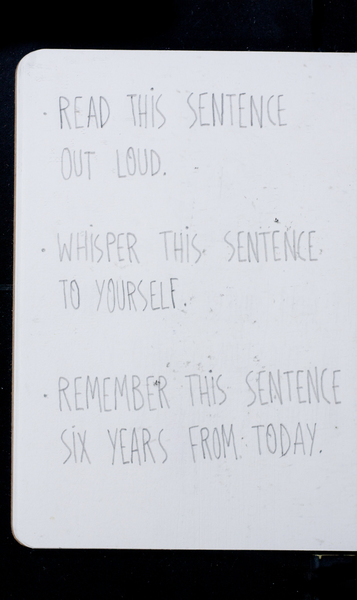 · READ THIS SENTENCE
OUT LOUD.
· WHISPER THIS SENTENCE
TO YOURSELF.
· REMEMBER THIS SENTENCE
SIX YEARS FROM TODAY.